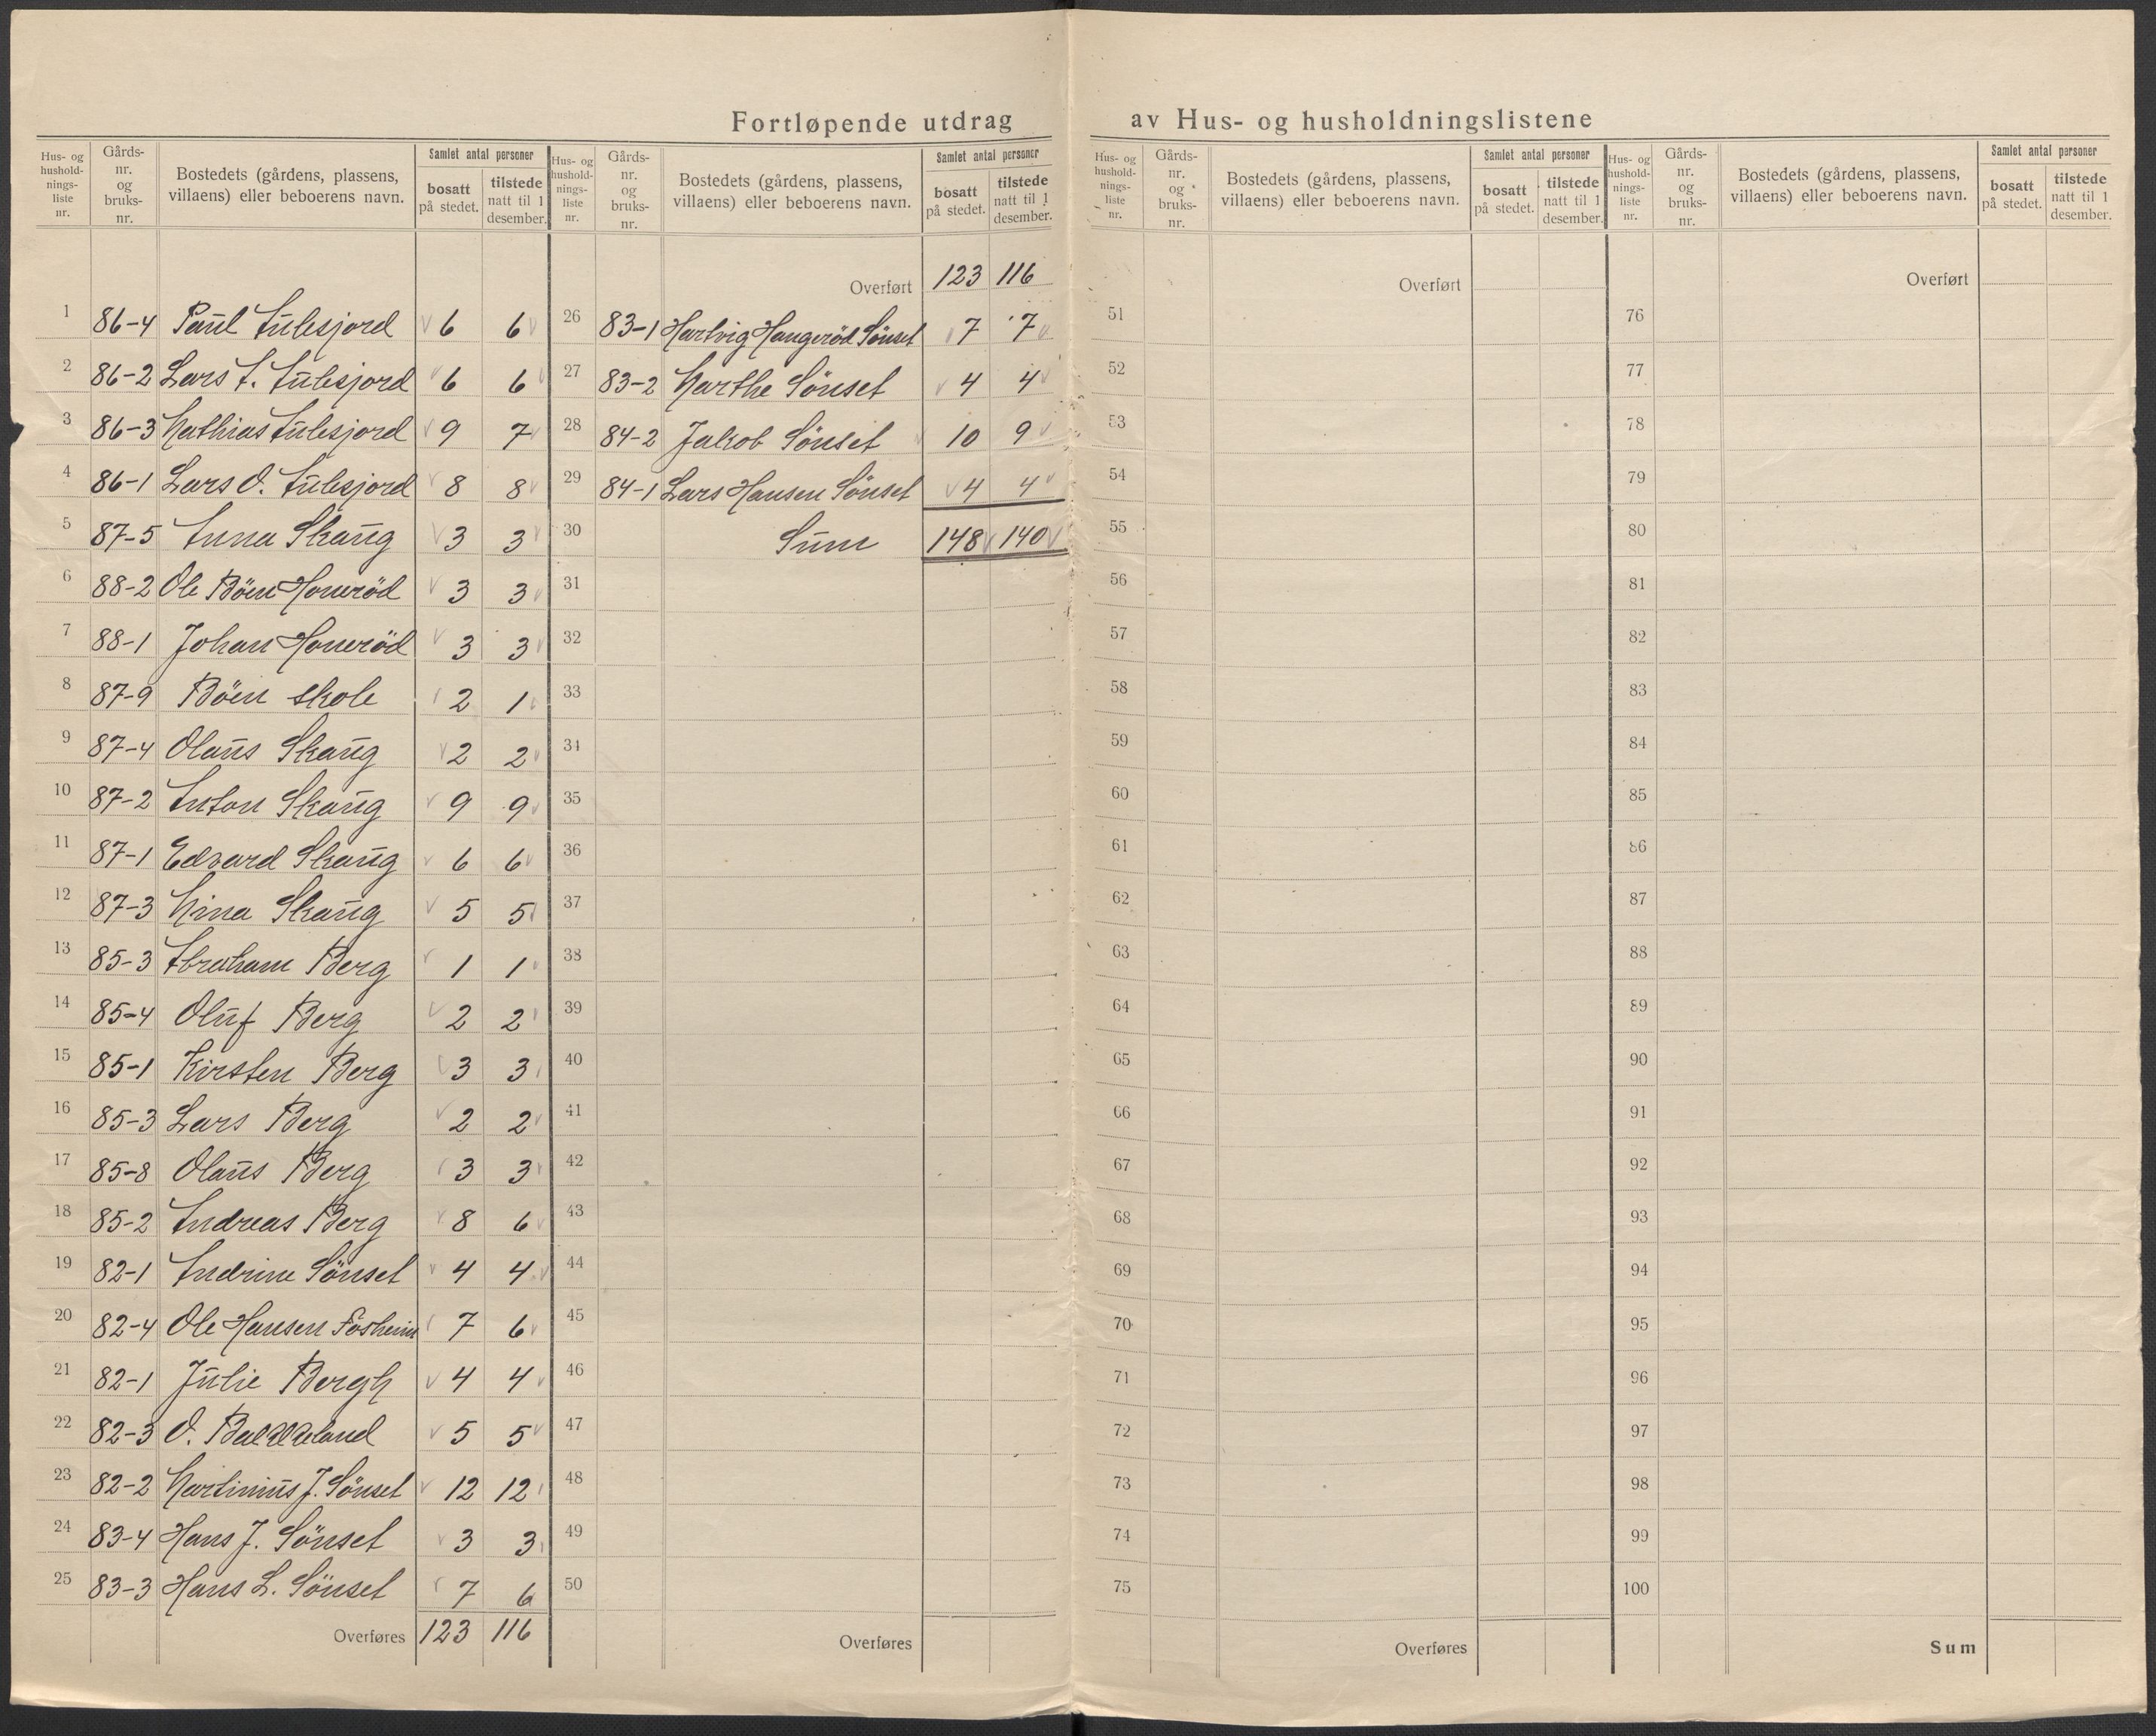 Fortløpende utdrag av Hus- og husholdningslistene
Hus- og hushold- nings- liste nr. | Gårds- nr. og bruks- nr. | Bostedets (gårdens, plassens, villaens) eller beboerens navn. | Samlet antal personer | bosatt på stedet. | tilstede natt til 1 desember.
1 86-4 Paul Aulesjord 6 6
2 86-2 Lars A. Aulesjord 6 6
3 86-3 Mathias Aulesjord 9 7
4 86-1 Lars O. Aulesjord 8 8
5 87-5 Anna Skaug 3 3
6 88-2 Ole Böen Homeröd 3 3
7 88-1 Johan Homeröd 3 3
8 87-9 Böen skole 2 1
9 87-4 Olaus Skaug 2 2
10 87-2 Anton Skaug 9 9
11 87-1 Edvard Skaug 6 6
12 87-3 Mina Skaug 5 5
13 85-3 Abraham Berg 1 1
14 85-4 Oluf Berg 2 2
15 85-1 Kirsten Berg 3 3
16 85-3 Lars Berg 2 2
17 85-8 Olaus Berg 3 3
18 85-2 Andreas Berg 8 6
19 82-1 Andrine Sönset 4 4
20 82-4 Ole Hansen Fosheim 7 6
21 82-1 Julie Bergh 4 4
22 82-3 O. 5 5
23 82-2 Martinius J. Sönset 12 12
24 83-4 Hans J. Sönset 3 3
25 83-3 Hans L. Sönset 7 6
Overføres 123 116
Hus- og hushold- nings- liste nr. | Gårds- nr. og bruks- nr. | Bostedets (gårdens, plassens, villaens) eller beboerens navn. | Samlet antal personer | bosatt på stedet. | tilstede natt til 1 desember.
Overført 123 116
26 83-1 Hartvig Haugeröd Sönset 7 7
27 83-2 Marthe Sönset 4 4
28 84-2 Jakob Sönset 10 9
29 84-1 Lars Hansen Sönset 4 4
30 Sum 148 140
31
32
33
34
35
36
37
38
39
40
41
42
43
44
45
46
47
48
49
50
Overføres
Hus- og hushold- nings- liste nr. | Gårds- nr. og bruks- nr. | Bostedets (gårdens, plassens, villaens) eller beboerens navn. | Samlet antal personer | bosatt på stedet. | tilstede natt til 1 desember.
Overført
51
52
53
54
55
56
57
58
59
60
61
62
63
64
65
66
67
68
69
70
71
72
73
74
75
Overføres
Hus- og hushold- nings- liste nr. | Gårds- nr. og bruks- nr. | Bostedets (gårdens, plassens, villaens) eller beboerens navn. | Samlet antal personer | bosatt på stedet. | tilstede natt til 1 desember.
Overført
76
77
78
79
80
81
82
83
84
85
86
87
88
89
90
91
92
93
94
95
96
97
98
99
100
Sum